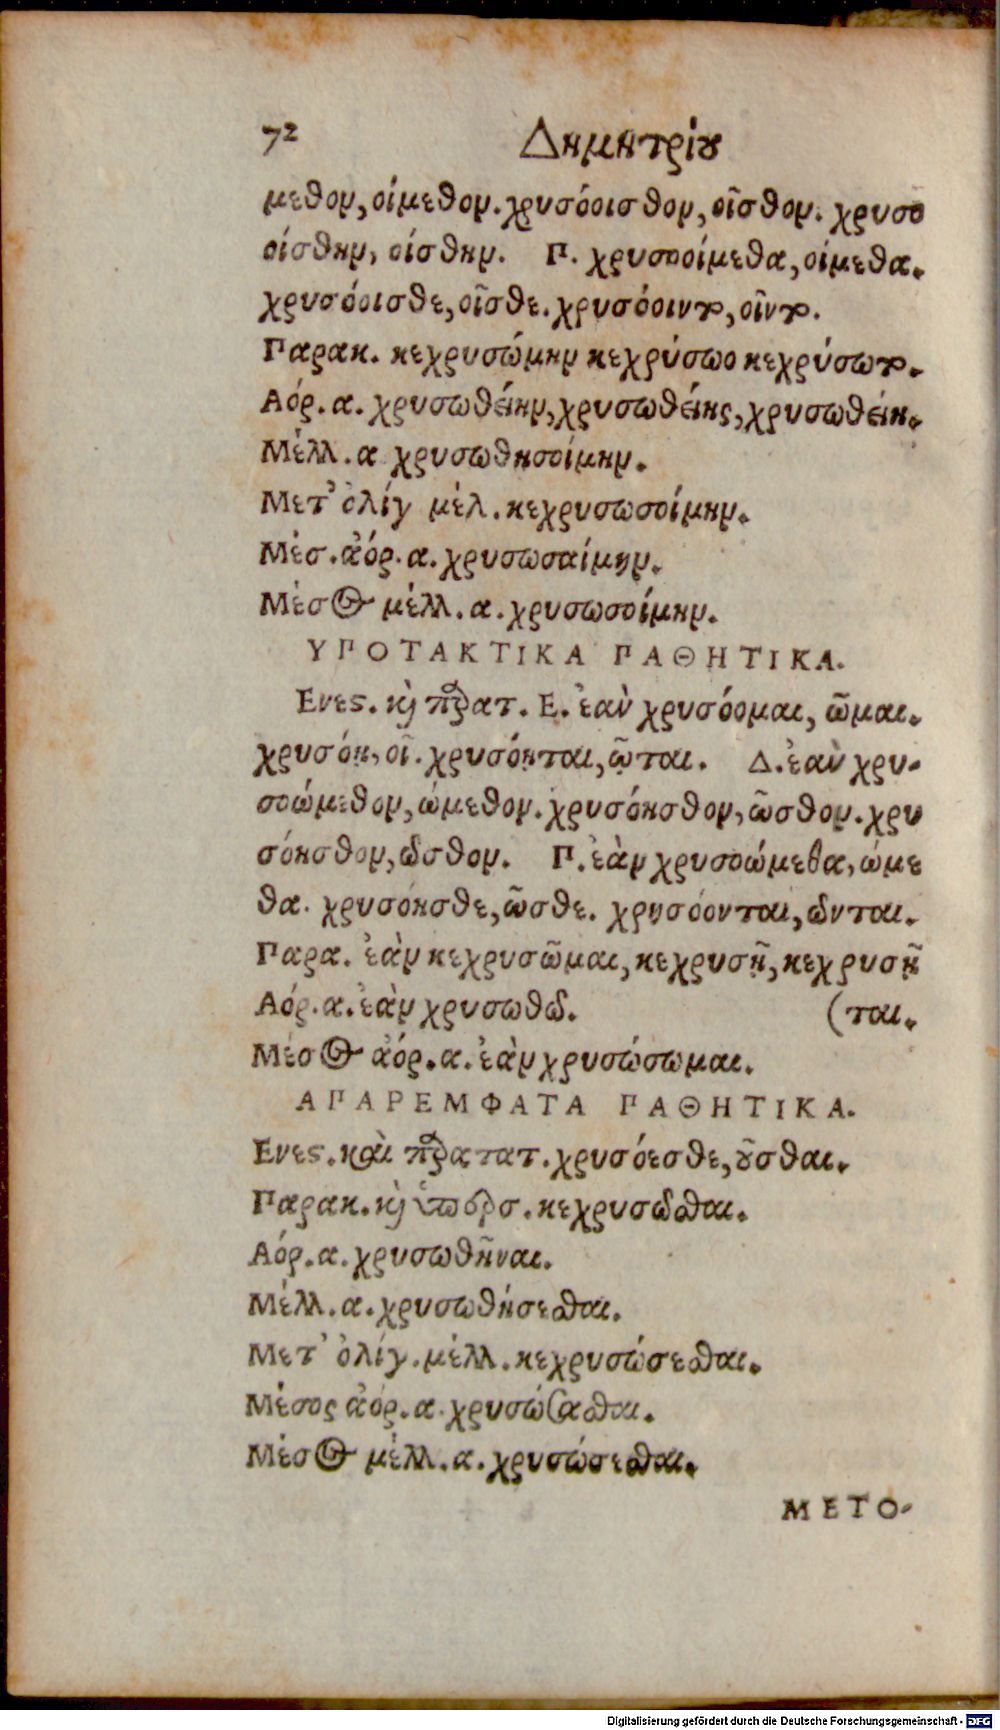 72 Δημητρίου
μεθον, οίμεθον. χρυσόοισθον, οῖσθον. χρυσο
οίσθην, οίσθην. Π. χρυσοοίμεθα, οίμεθα.
χρυσόοισθε, οῖσθε. χρυσόοιντο, οῖντο.
Παρακ. κεχρυσώμην κεχρύσωο κεχρύσωτο.
Αόρ. α. χρυσωθείην, χρυσωθείης, χρυσωθείη.
Μέλλ. α χρυσωθησοίμην.
Μετ' ὀλίγ μέλ. κεχρυσωσοίμην.
Μέσ. ἀόρ. α. χρυσωσαίμην.
Μέσος μέλλ. α. χρυσωσοίμην.
ΥΠΟΤΑΚΤΙΚΑ ΠΑΘΗΤΙΚΑ.
Ενεστ. καὶ παρατ. Ε. ἐὰν χρυσόομαι, ῶμαι.
χρυσόῃ, οῖ. χρυσόηται, ῶται. Δ. ἐὰν χρυ-
σοώμεθον, ώμεθον. χρυσόησθον, ῶσθον. χρυ
σόησθον, ῶσθον. Π. ἐὰν χρυσοώμεθα, ώμε
θα. χρυσόησθε, ῶσθε. χρυσόονται, ῶνται.
Παρα. ἐὰν κεχρυσῶμαι, κεχρυσῇ, κεχρυσῇ
Αόρ. α. ἐὰν χρυσωθῶ. (ται.
Μέσος ἀόρ. α. ἐὰν χρυσώσωμαι.
ΑΠΑΡΕΜΦΑΤΑ ΠΑΘΗΤΙΚΑ.
Ενεστ. καὶ παρατατ. χρυσόεσθε, οῦσθαι.
Παρακ. καὶ ὑπερσ. κεχρυσῶσθαι.
Αόρ. α. χρυσωθῆναι.
Μέλλ. α. χρυσωθήσεσθαι.
Μετ' ὀλίγ. μέλλ. κεχρυσώσεσθαι.
Μέσος ἀόρ. α. χρυσώσασθαι.
Μέσος μέλλ. α. χρυσώσεσθαι.
ΜΕΤΟ-
Digitalisierung gefördert durch die Deutsche Forschungsgemeinschaft - DFG